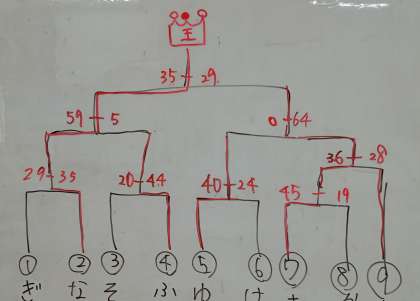 王
35 29
59 5 0 64
36 28
29 35 20 44 40 24 45 19
① ② ③ ④ ⑤ ⑥ ⑦ ⑧ ⑨
な そ ふ ゆ け